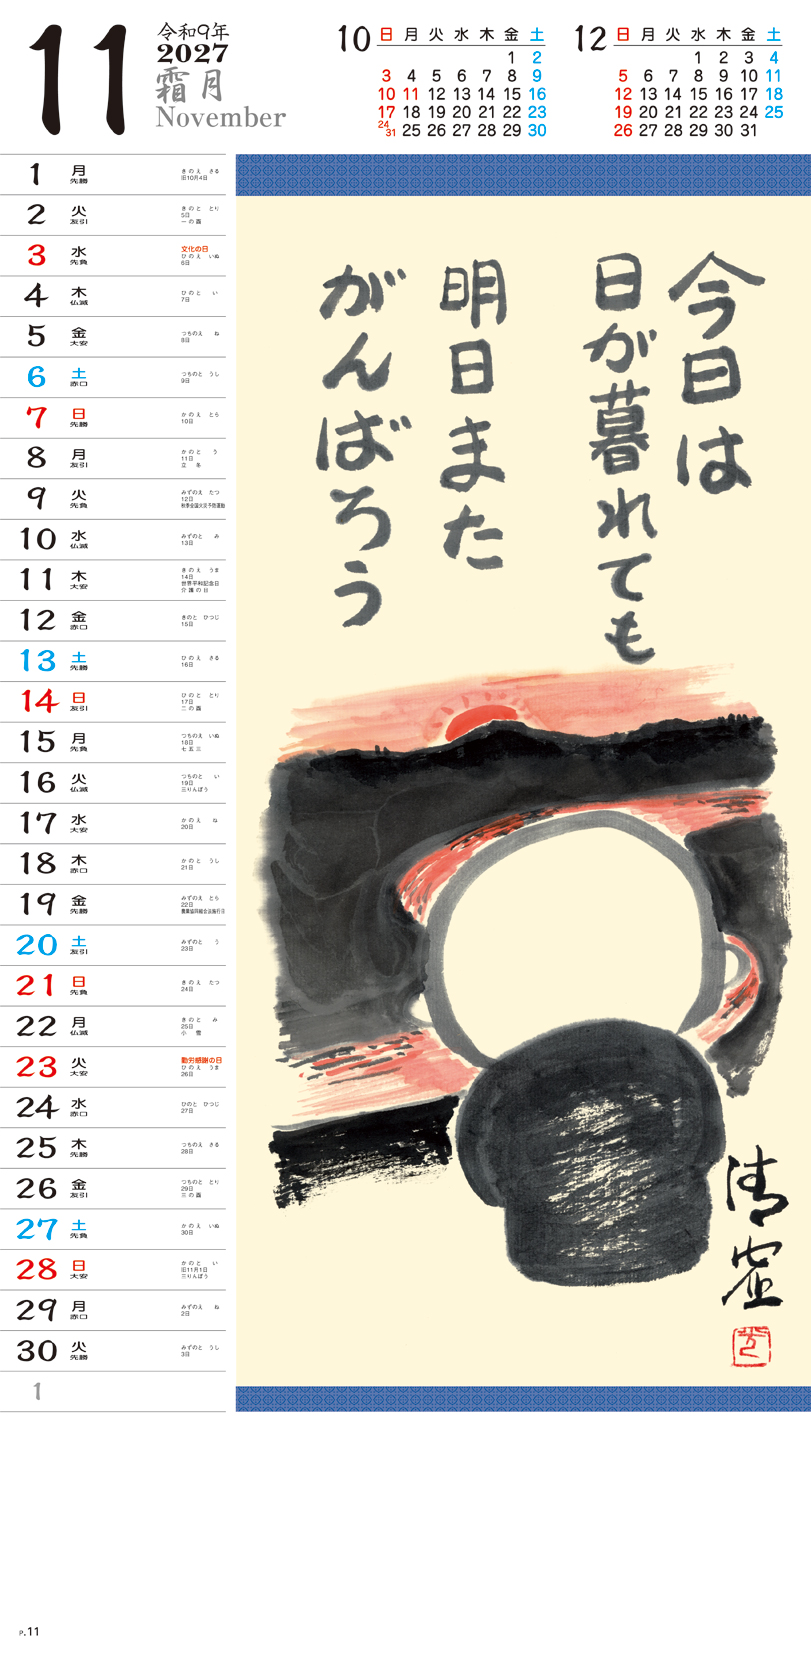 11
令和9年
2027
霜月
November
10
日 月 火 水 木 金 土
1 2
3 4 5 6 7 8 9
10 11 12 13 14 15 16
17 18 19 20 21 22 23
24 31 25 26 27 28 29 30
12
日 月 火 水 木 金 土
1 2 3 4
5 6 7 8 9 10 11
12 13 14 15 16 17 18
19 20 21 22 23 24 25
26 27 28 29 30 31
1 月 先勝 きのえ さる
旧10月4日
2 火 友引 きのと とり
5日
一の酉
3 水 先負 文化の日
ひのえ いぬ
6日
4 木 仏滅 ひのと い
7日
5 金 大安 つちのえ ね
8日
6 土 赤口 つちのと うし
9日
7 日 先勝 かのえ とら
10日
8 月 友引 かのと う
11日
立冬
9 火 先負 みずのえ たつ
12日
秋季全国火災予防運動
10 水 仏滅 みずのと み
13日
11 木 大安 きのえ うま
14日
世界平和記念日
介護の日
12 金 赤口 きのと ひつじ
15日
13 土 先勝 ひのえ さる
16日
14 日 友引 ひのと とり
17日
二の酉
15 月 先負 つちのえ いぬ
18日
七五三
16 火 仏滅 つちのと い
19日
三りんぼう
17 水 大安 かのえ ね
20日
18 木 赤口 かのと うし
21日
19 金 先勝 みずのえ とら
22日
農業協同組合法施行日
20 土 友引 みずのと う
23日
21 日 先負 きのえ たつ
24日
22 月 仏滅 きのと み
25日
小雪
23 火 大安 勤労感謝の日
ひのえ うま
26日
24 水 赤口 ひのと ひつじ
27日
25 木 先勝 つちのえ さる
28日
26 金 友引 つちのと とり
29日
三の酉
27 土 先負 かのえ いぬ
30日
28 日 大安 かのと い
旧11月1日
三りんぼう
29 月 赤口 みずのえ ね
2日
30 火 先勝 みずのと うし
3日
1
今日は
日が暮れても
明日また
がんばろう
清宏
P.11